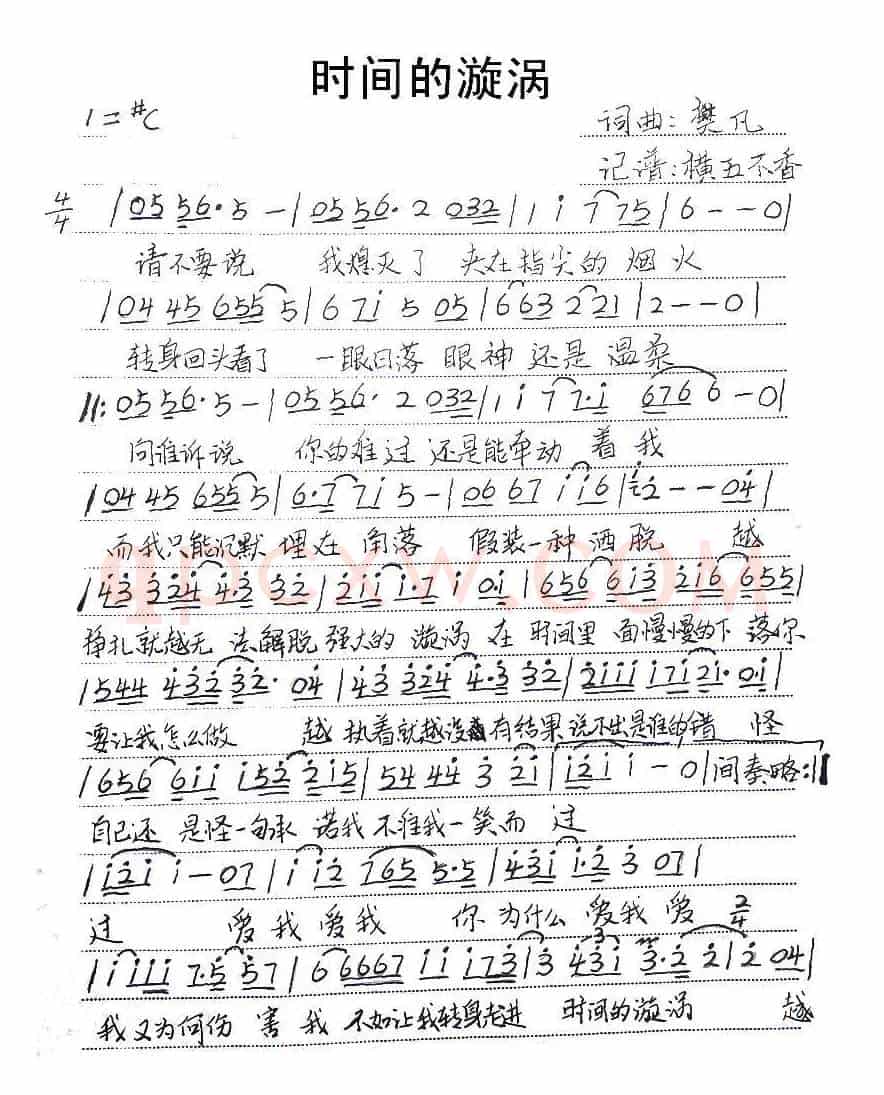 时间的漩涡
1=#C
词曲:樊凡
记谱:横五不香
4/4 |05 56·5 -|055 56· 2 032|1 1 7 75|6--0|
请不要说 我熄灭了 夹在指尖的烟火
|04 45 655 5|6 71 5 05|663 2 21|2--0|
转身回头看了 一眼日落 眼神还是温柔
‖:05 56·5-|05 56· 2 032|1 1 7 7·1 6766-0|
向谁诉说 你的难过 还是能牵动着我
|04 45 655 5|6·7 71 5-|06 67 1 16|12--04|
而我只能沉默 埋在角落 假装一种洒脱 越
|43 324 4·3 32|211 1·7 1 01|656 613 216 655|
挣扎就越无法解脱 强大的漩涡 在时间里面慢慢的下落你
|544 432 32· 04|43 324 4·3 32|2111 17121·01|
要让我怎么做 越执着就越没有结果 说不出是谁的错 怪
|656 611 152 215|54 44 3 21|121 1-0|间奏略:‖
自己还是怪一句承诺我不准我一笑而过
|121 1-07|1 12 765 5·5|431 1·2 3 07|
过 爱我爱我 你为什么爱我爱 2/4
|1111 7·5 57|6 6667 11 173|3 431 3·2 21|2 04|
我又为何伤害我 不如让我转身走进 时间的漩涡 越